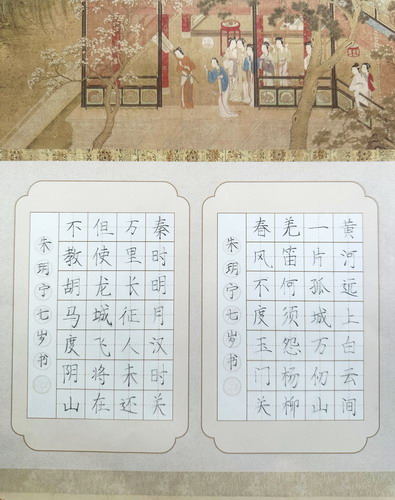 黄河远上白云间
一片孤城万仞山
羌笛何须怨杨柳
春风不度玉门关
朱玥宁七岁书
秦时明月汉时关
万里长征人未还
但使龙城飞将在
不教胡马度阴山
朱玥宁七岁书